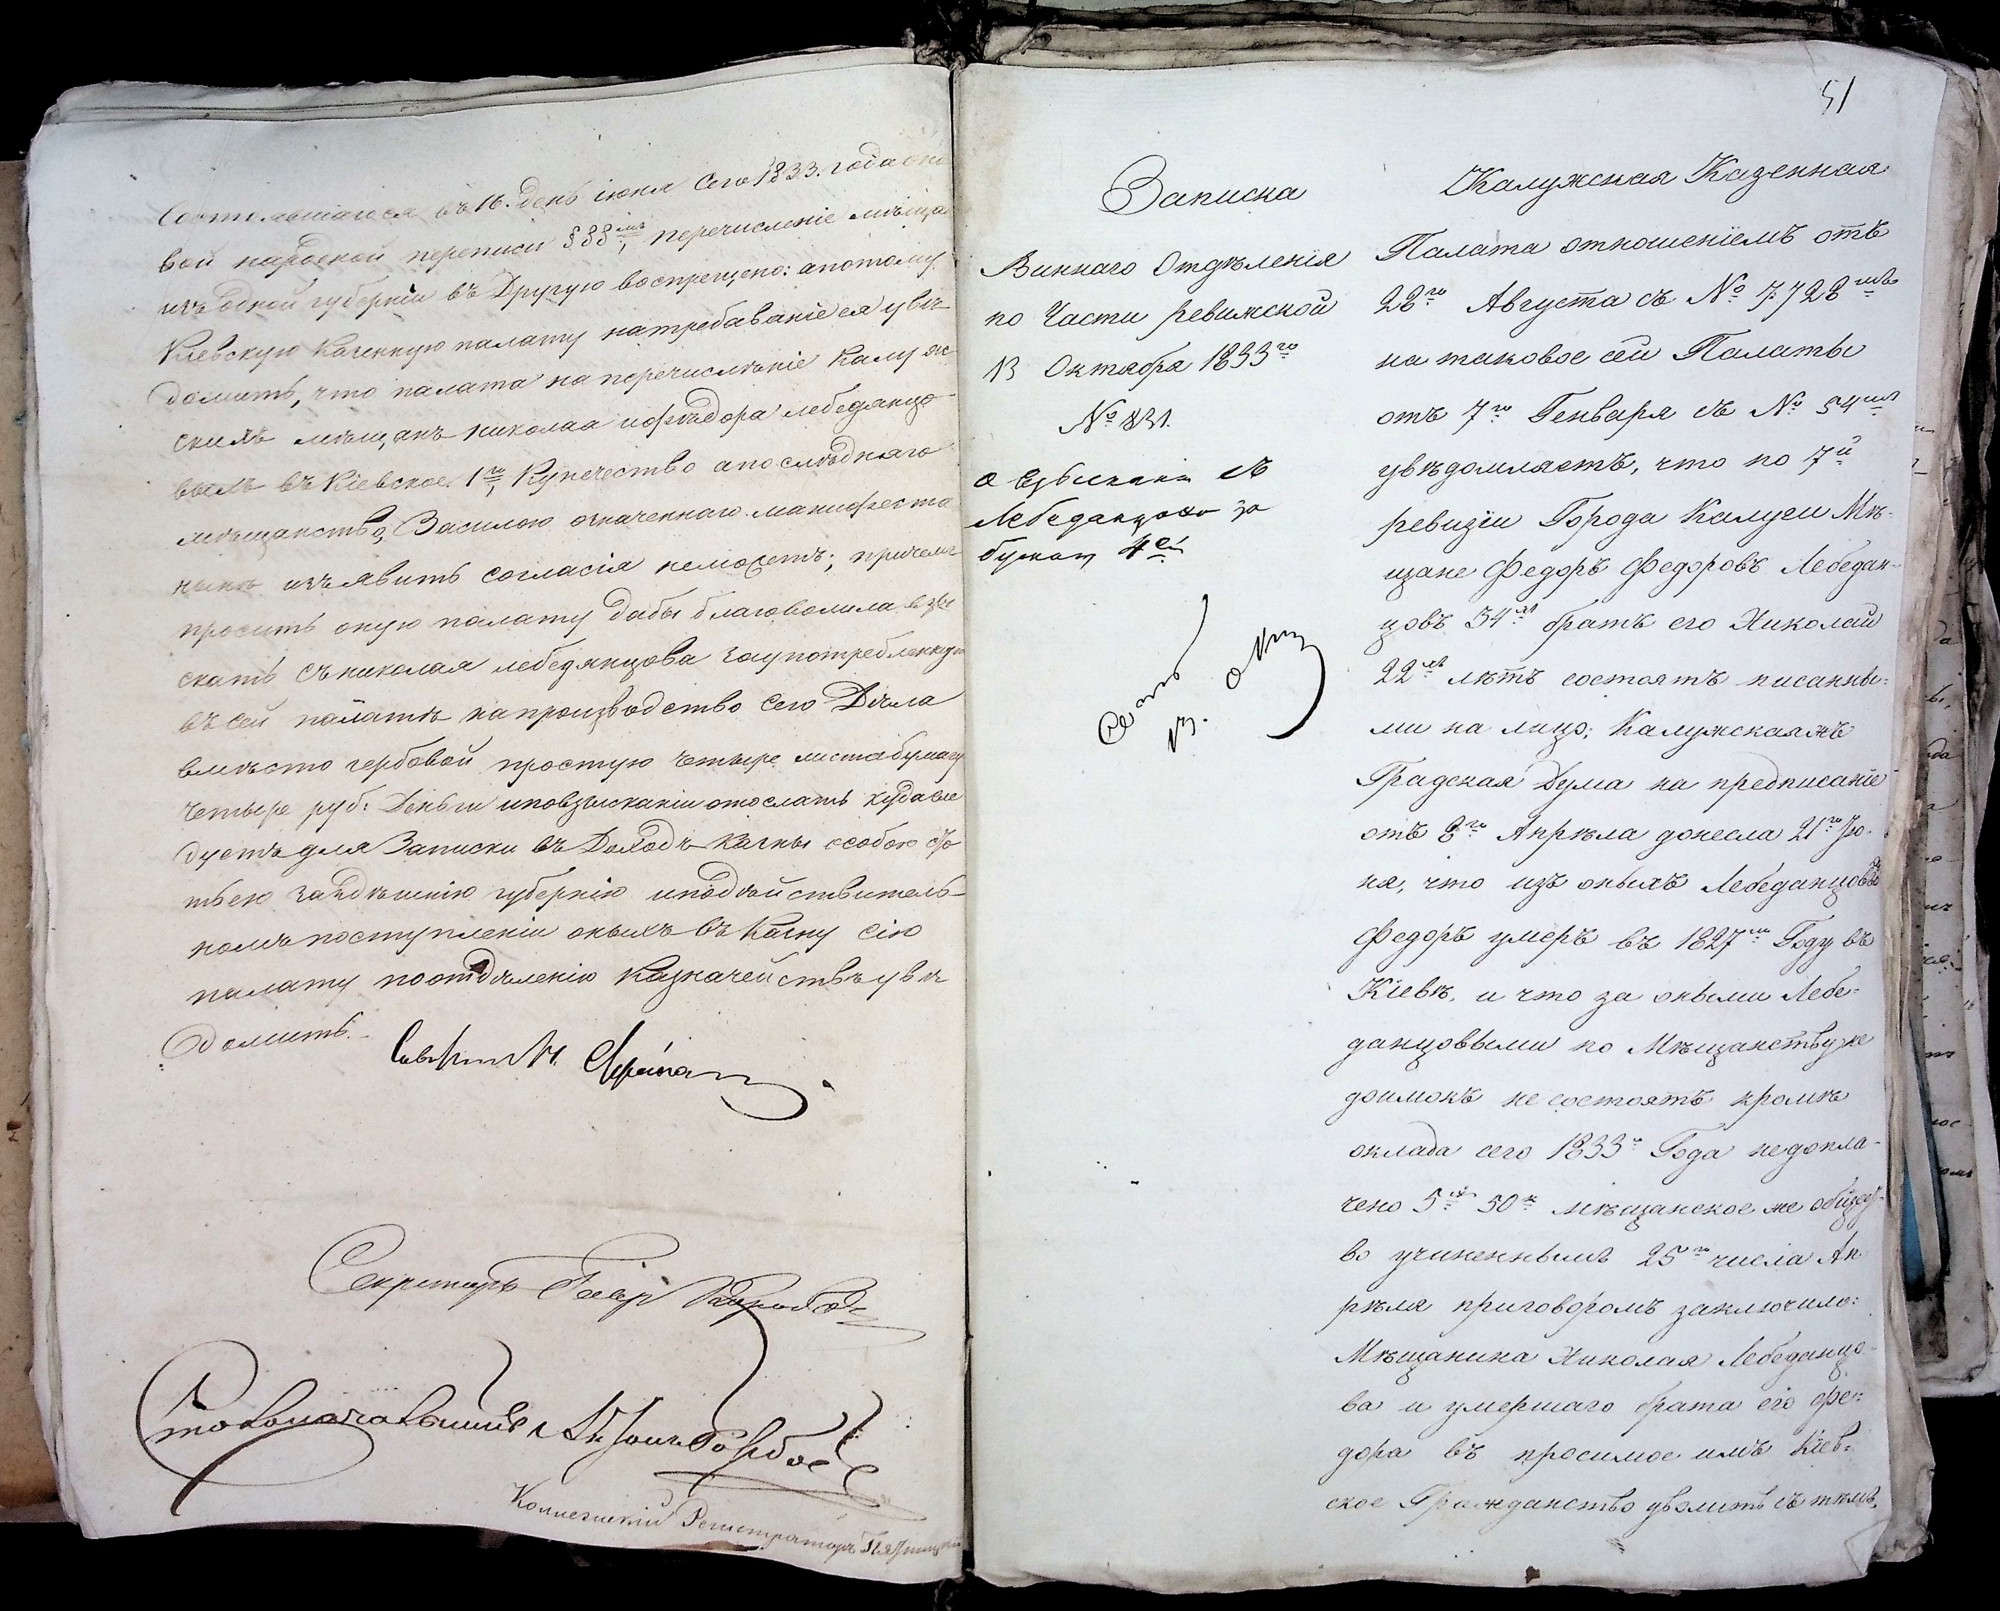 состоявшагося въ 16. день іюня сего 1833. года о но
вой народной переписи § 88мъ, перечисленіе мѣща
изъ одной губерніи въ другую воспрещено: апотому
Кіевскую Казенную палату натребаваніе ея увѣ
домить, что палата на перечисленіе Калуж
скихъ мѣщанъ николая иофѣдора лебедянцо
выхъ въ Кіевское 1е, Купечество апослѣдняго
мѣщанство, Засилою означеннаго манифеста
нынѣ изъявить согласія неможетъ; причемъ
просить оную палату дабы благоволила взы
скать съ николая лебедянцова заупотребленную
въ сей палатѣ на производство сего Дѣла
вмѣсто гербовой простую четыре листа бумагу
четыре руб: Деньги иповзысканіи отослать куда сле
дуетъ для Записки въ Доходъ казны особою ста
тьею заздѣшнію губернію иподѣйствитель-
номъ поступленіи оныхъ въ Казну сію
палату поотдѣленію Казначействъ увѣ
домить.
Секретарь
Столоначальникъ
Коллежскій Регистраторъ
51
Записка
Виннаго Отдѣленія
по Части ревижской
13 Октября 1833го
№ 831.
о взысканіи съ
Лебеданцова за
бумагу 4
Калужская Казенная
Палата отношеніемъ отъ
28го Августа съ № 7728мъ
на таковое сей Палаты
отъ 7го Генваря съ № 54мъ
увѣдомляетъ, что по 7й
ревизіи Города Калуги Мѣ-
щане Федоръ Федоровъ Лебедан-
цовъ 34хъ братъ его Николай
22хъ лѣтъ состоятъ писанны-
ми на лицо; Калужская жъ
Градская Дума на предписаніе
отъ 8го Апрѣля донесла 21го Ію-
ня, что изъ оныхъ Лебеданцовыхъ
Федоръ умеръ въ 1827мъ Году въ
Кіевѣ. и что за оными Лебе-
данцовыми по Мѣщанству не
доимокъ не состоятъ кромѣ
оклада сего 1833го Года недопла-
чено 5ти 50к мѣщанское же общест-
во учиненнымъ 25го числа Ап-
рѣля приговоромъ заключило:
Мѣщанина Николая Лебеданцо-
ва и умершаго брата его Фе-
дора въ просимое имъ Кіев-
ское Гражданство уволить съ тѣмъ,